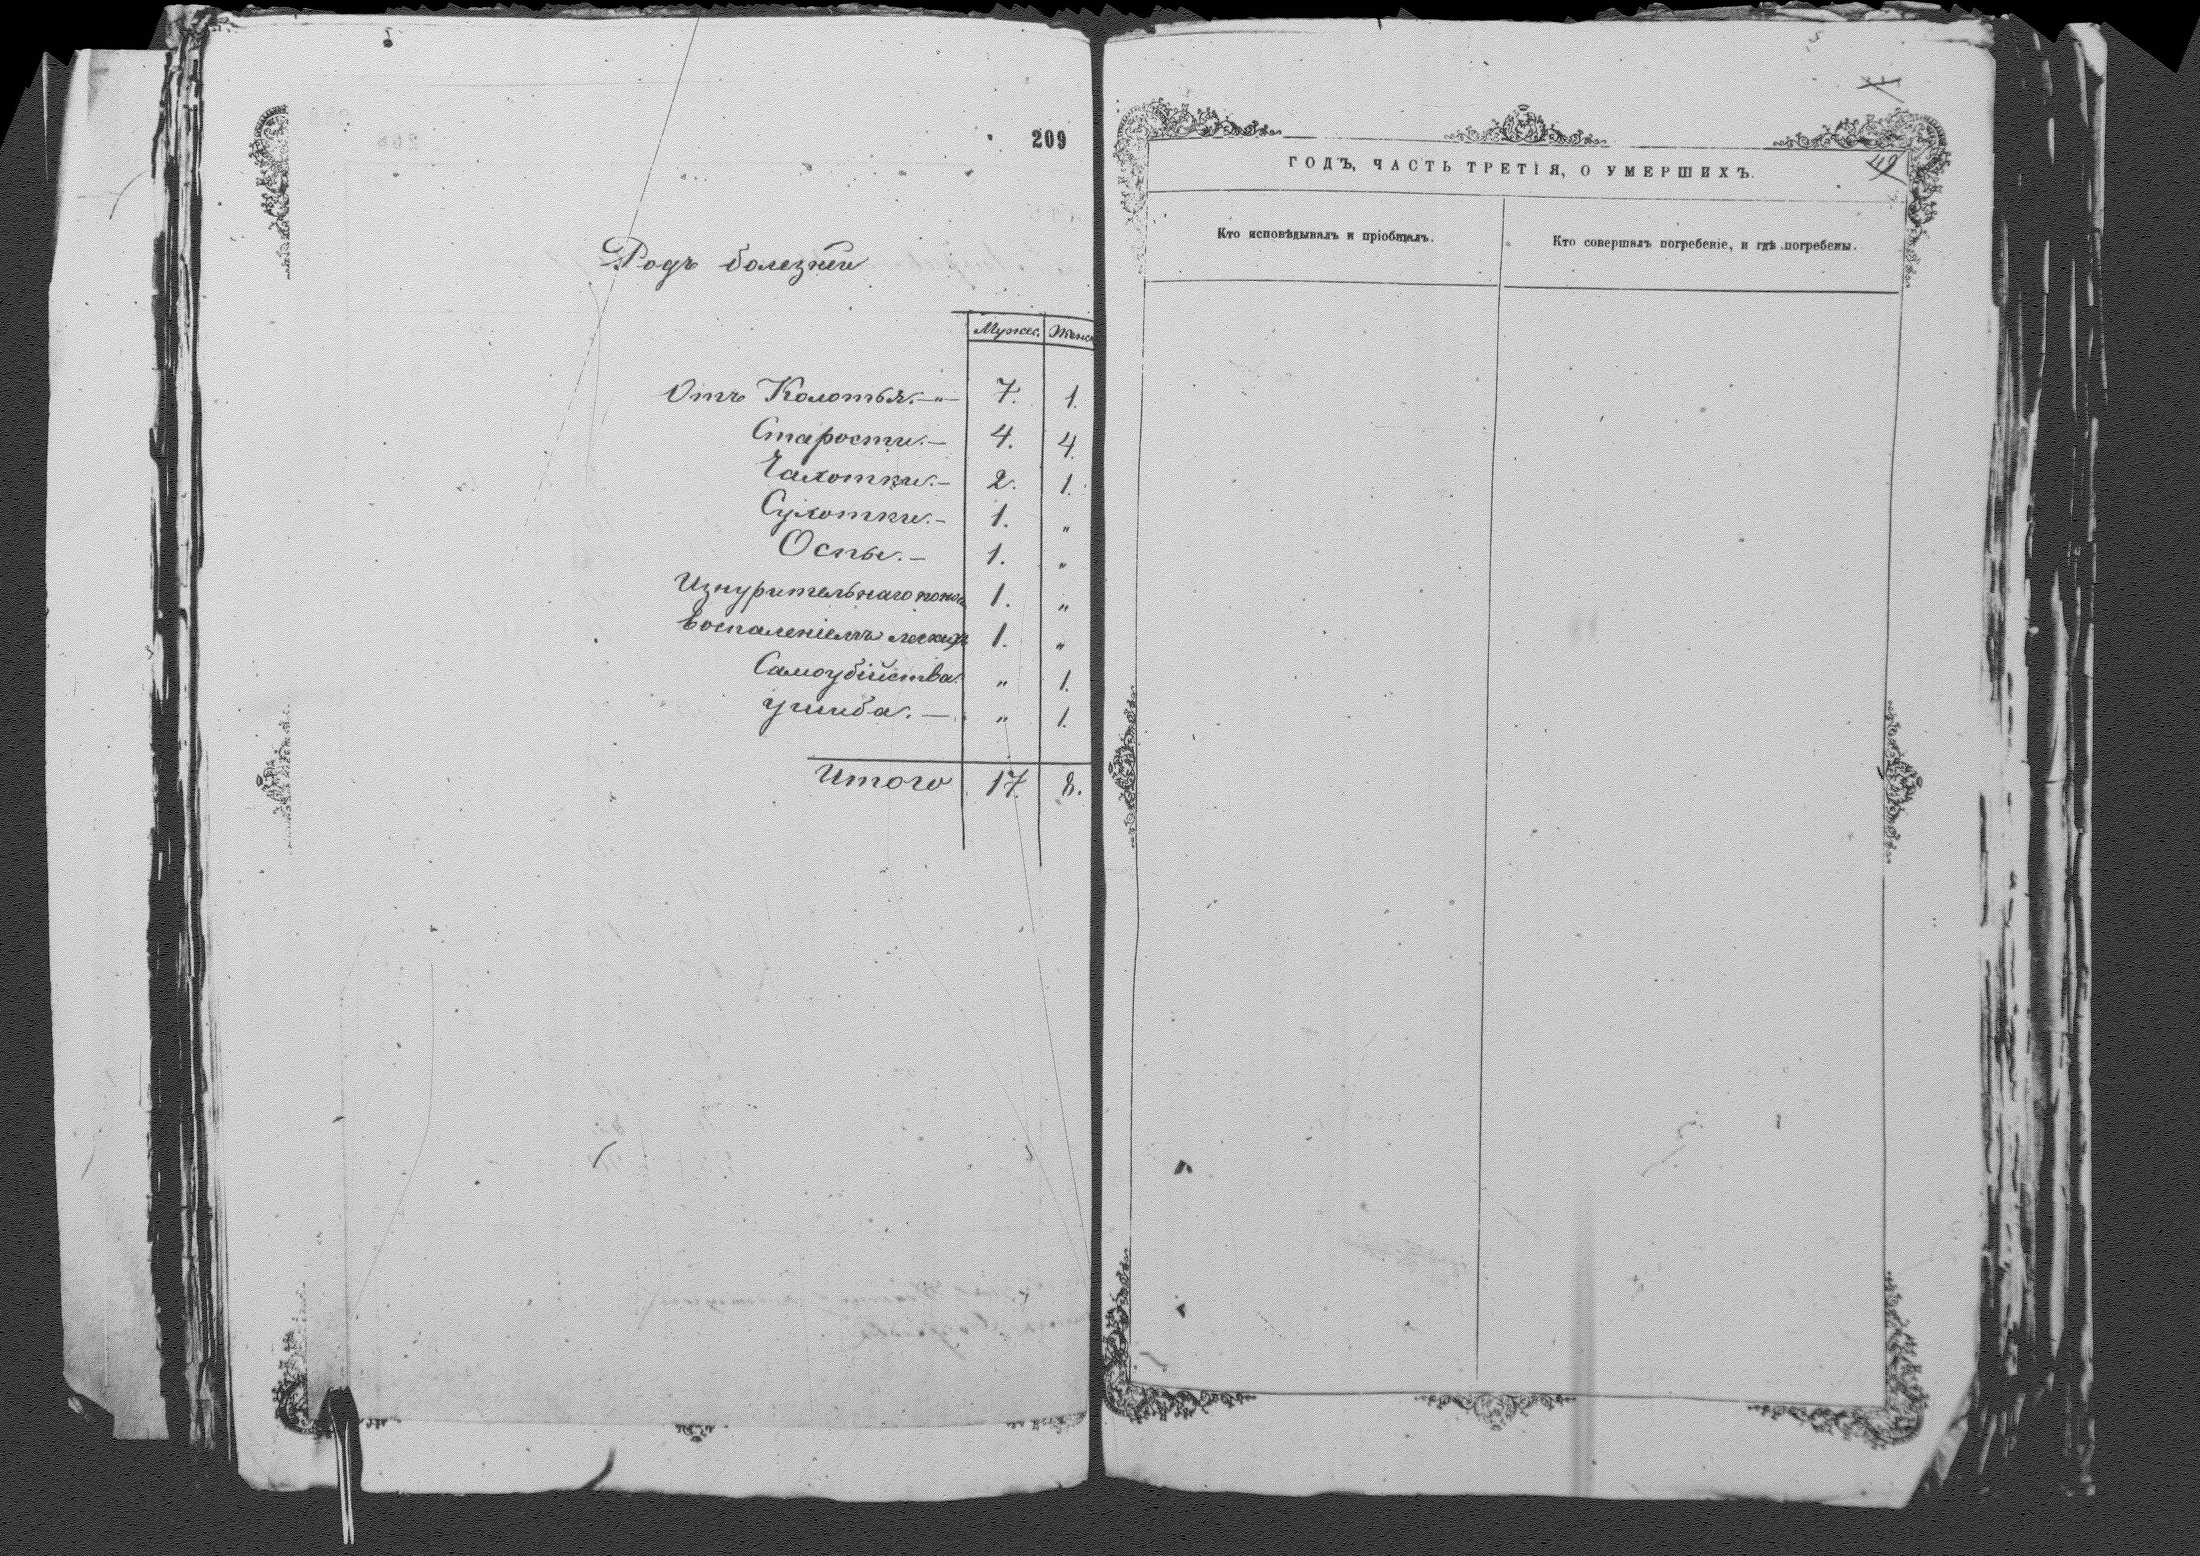 209
Родъ болезни
Мужес. Женс
Отъ Колотья. 7. 1.
Старости. 4. 4.
Чахотки. 2. 1.
Сухотки. 1. „
Оспы. 1. „
Изнурительнаго поноса 1. „
воспаленіемъ легкихъ 1. „
Самоубійства. „ 1.
ушиба. „ 1.
Итого 17 8.
49
ГОДЪ, ЧАСТЬ ТРЕТІЯ, О УМЕРШИХЪ.
Кто исповѣдывалъ и пріобщалъ. Кто совершалъ погребеніе, и гдѣ погребены.